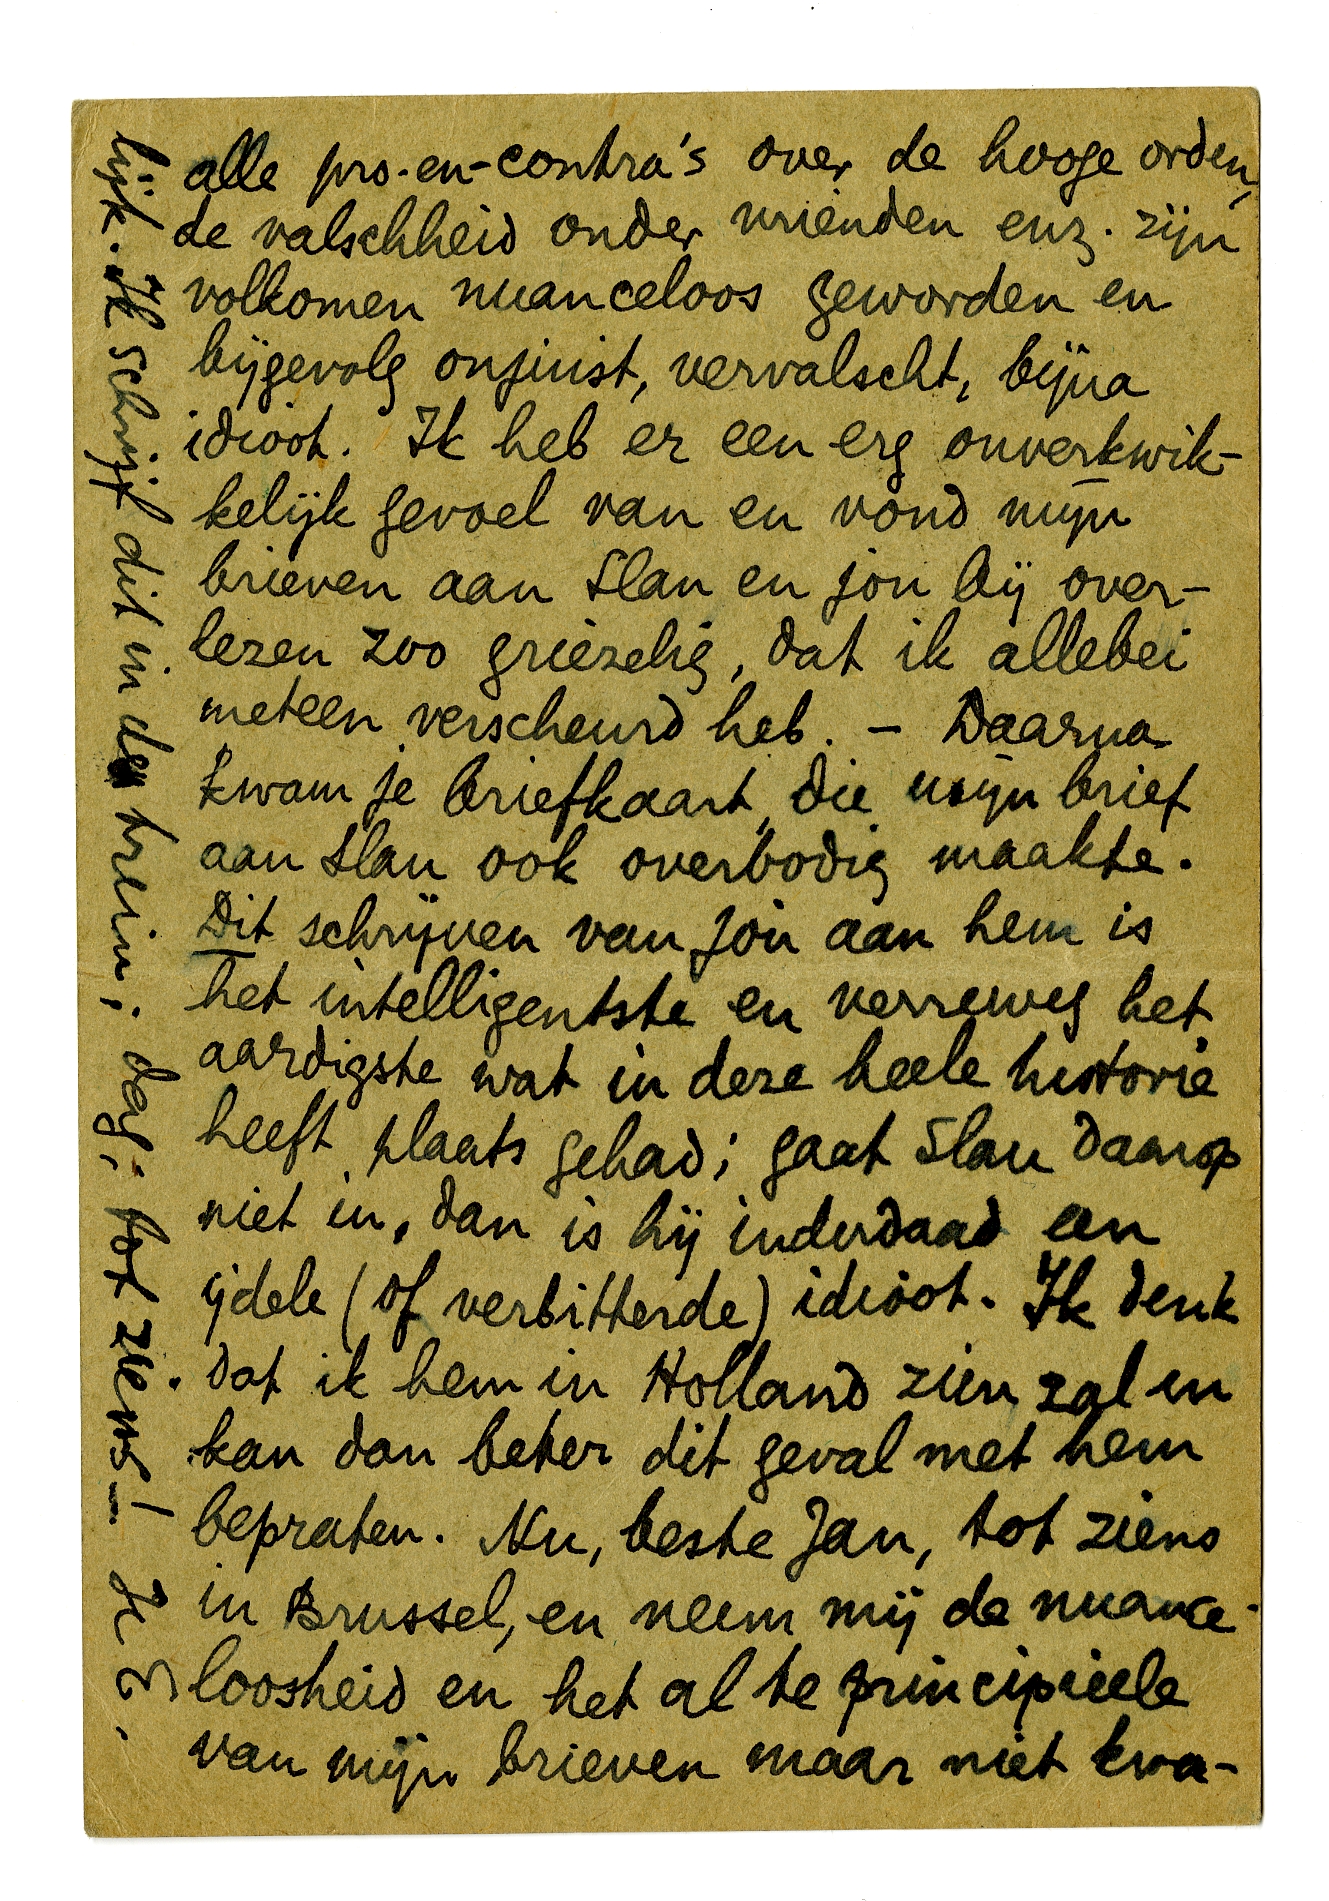 alle pro-en-contra's over de hooge orden,
de valschheid onder vrienden enz. zijn
volkomen nuanceloos geworden en
bijgevolg onjuist, vervalscht, bijna
idioot. Ik heb er een erg onverkwik-
kelijk gevoel van en vond mijn
brieven aan Slau en Jon bij over-
lezen zoo griezelig, dat ik allebei
meteen verscheurd heb. — Daarna
kwam je briefkaart, die mijn brief
aan Slau ook overbodig maakte.
Dit schrijven van Jon aan hem is
het intelligentste en verreweg het
aardigste wat in deze heele historie
heeft plaats gehad; gaat Slau daarop
niet in, dan is hij inderdaad een
ijdele (of verbitterde) idioot. Ik denk
dat ik hem in Holland zien zal en
kan dan beter dit geval met hem
bepraten. Nu, beste Jan, tot ziens
in Brussel, en neem mij de nuance-
loosheid en het al te principieele
van mijn brieven maar niet kwa-
lijk. Ik schrijf dit in den trein; dag, tot ziens! Je E.